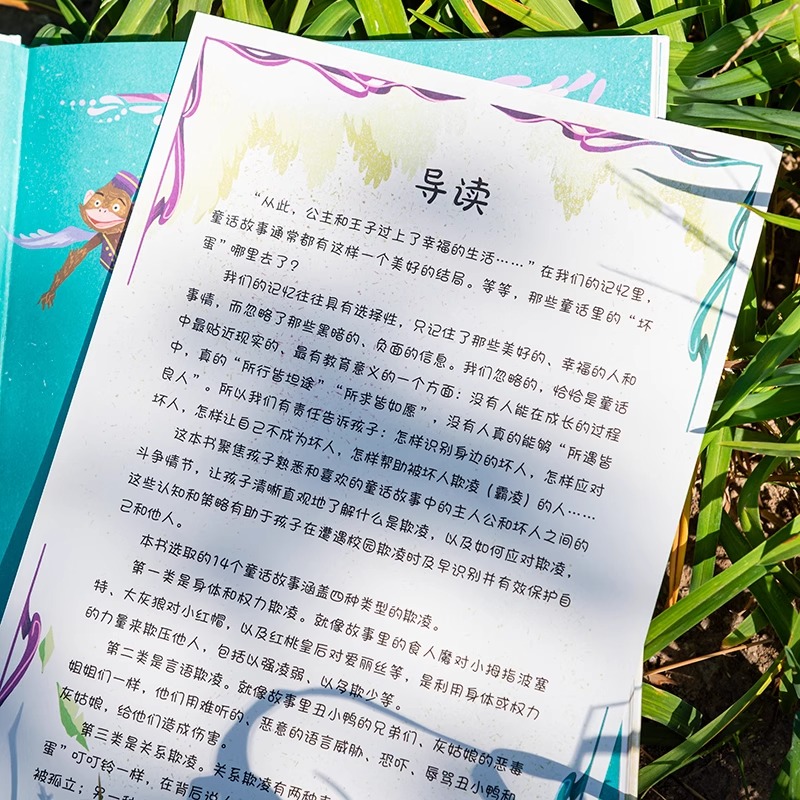 导读
“从此，公主和王子过上了幸福的生活……”在我们的记忆里，
童话故事通常都有这样一个美好的结局。等等，那些童话里的“坏
蛋”哪里去了？
我们的记忆往往具有选择性，只记住了那些美好的、幸福的人和
事情，而忽略了那些黑暗的、负面的信息。我们忽略的，恰恰是童话
中最贴近现实的、最有教育意义的一个方面：没有人能在成长的过程
中，真的“所行皆坦途”“所求皆如愿”，没有人真的能够“所遇皆
良人”。所以我们有责任告诉孩子：怎样识别身边的坏人，怎样应对
坏人，怎样让自己不成为坏人，怎样帮助被坏人欺凌（霸凌）的人……
这本书聚焦孩子熟悉和喜欢的童话故事中的主人公和坏人之间的
斗争情节，让孩子清晰直观地了解什么是欺凌，以及如何应对欺凌，
这些认知和策略有助于孩子在遭遇校园欺凌时及早识别并有效保护自
己和他人。
本书选取的14个童话故事涵盖四种类型的欺凌。
第一类是身体和权力欺凌。就像故事里的食人魔对小拇指波塞
特、大灰狼对小红帽，以及红桃皇后对爱丽丝等，是利用身体或权力
的力量来欺压他人，包括以强凌弱、以多欺少等。
第二类是言语欺凌。就像故事里丑小鸭的兄弟们、灰姑娘的恶毒
姐姐们一样，他们用难听的、恶意的语言威胁、恐吓、辱骂丑小鸭和
灰姑娘，给他们造成伤害。
第三类是关系欺凌。关系欺凌有两种
蛋”叮叮铃一样，在背后说
被孤立；另一种